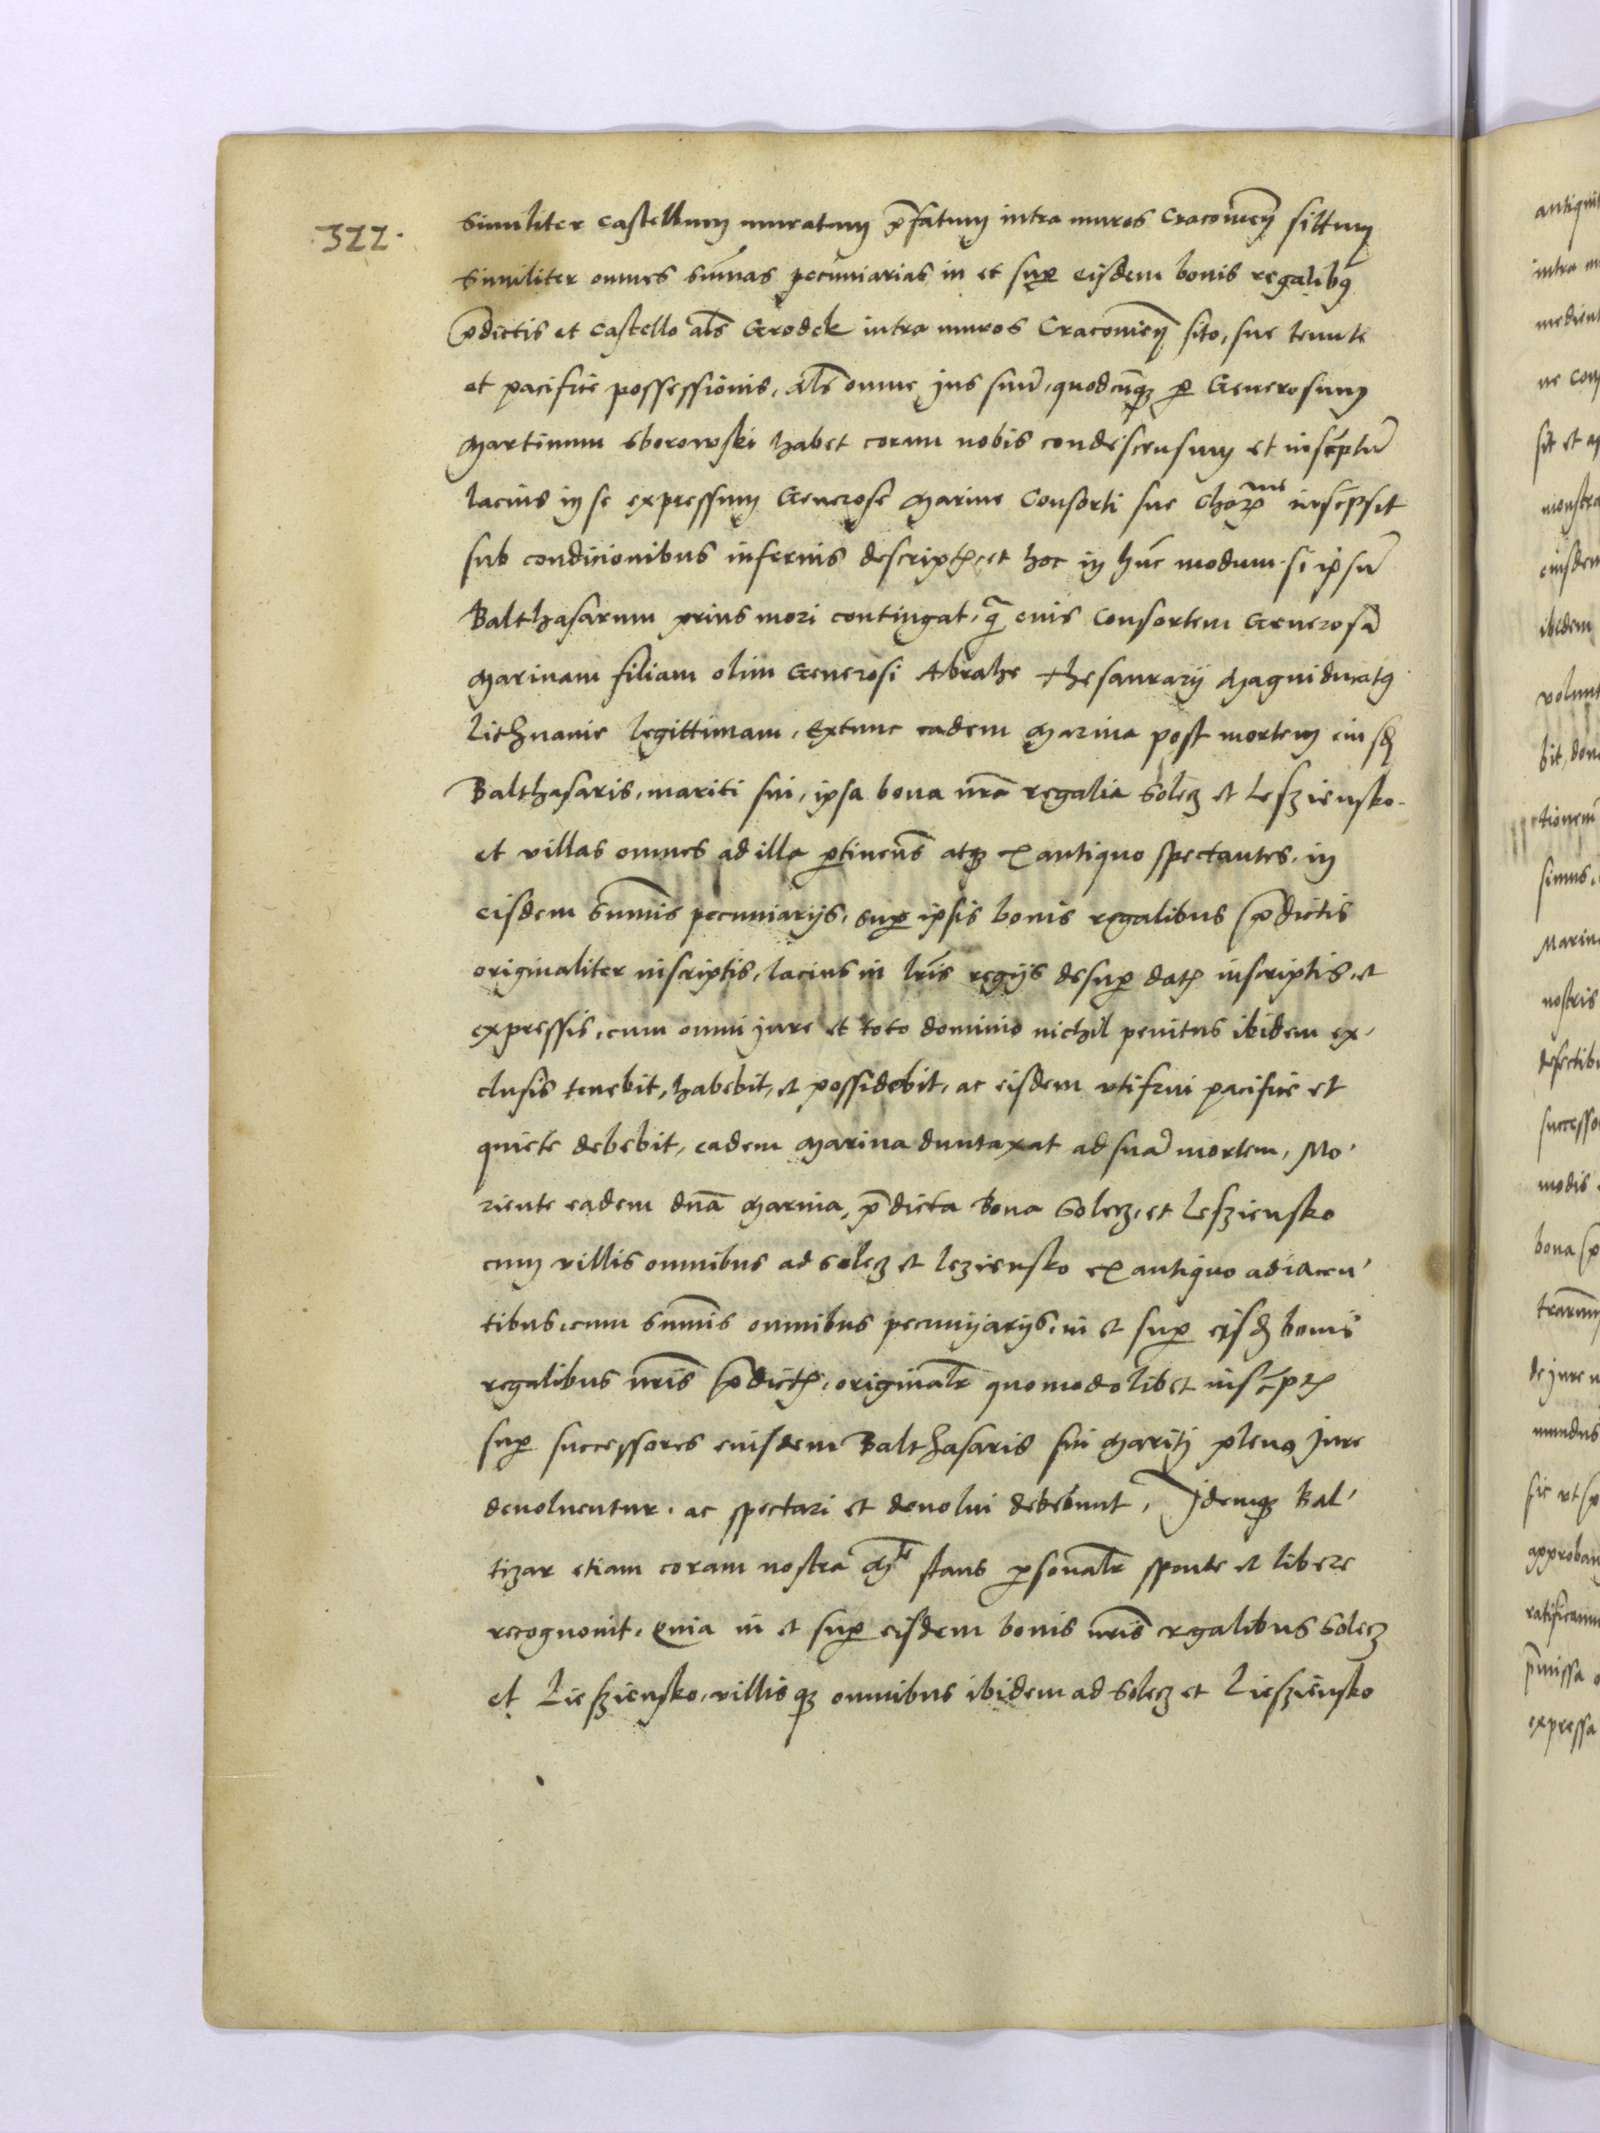 322.
Similiter castellum muratum p̄fatum intra muros Cracovieñ sittum
Similiter omnes sūmas pecuniarias in et sup eisdem bonis regalibꝰ
p̄dictis et castello als Grodek intra muros Cracovieñ sito, sue tenute
et pacifice possessionis, als omne jus suū, quodcūqꝫ p Generosum
Martinum sborowski habet coram nobis condescensum et inscptū
lacius in se expressum Generose Marine Consorti sue inscpsit
sub condicionibus inferius descriptꝭ et hoc in hūc modum. si ipsū
Balthasarum prius mori contingat, q̄ eius Consortem Generosā
Marinam filiam olim Generosi Abrahe thesaurarij Magniducatꝰ
Lithuanie legittimam, Extunc eadem Marina post mortem eiusd
Balthasaris, mariti sui, ipsa bona nr̄a regalia Solecz et Lesziensko.
et villas omnes ad illa ptinens atqꝫ ex antiquo spectantes, in
eisdem summis pecuniarijs, sup ipsis bonis regalibus p̄dictis
originaliter inscriptis, lacius in lr̄is regijs desup datꝭ inscriptis, et
expressis, cum omni jure et toto dominio nichil penitus ibidem ex,
clusis tenebit, habebit, et possidebit, ac eisdem utifrui pacifice et
quiete debebit, eadem Marina duntaxat ad suā mortem, Mo,
riente eadem dna Marina, p̄dicta Bona Solecz, et Lesziensko
cum villis omnibus ad Solecz et Leziensko ex antiquo adiacen,
tibus, cum sum̄is omnibus pecunijarijs, in et sup eisd bonis
regalibus nr̄is p̄dictꝭ, originalr quomodolibet inscptꝭ
sup successores eiusdem Balthasaris sui Mariti pleno Jure
devolventur, ac spectari et devolui debebunt, Idemqꝫ Bal,
tizar etiam coram nostra Mte stans psonalr sponte et libere
recognovit, Quia in et sup eisdem bonis nr̄is regalibus Solecz
et Liesziensko, villisqꝫ omnibus ibidem ad Solecz et Liesziensko